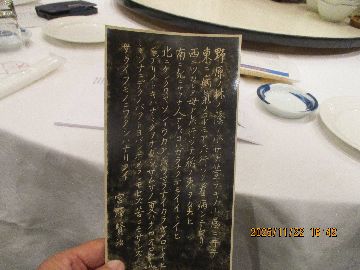 野原ノ松ノ林ノ陰ノ小サナ萱ブキノ小屋ニヰテ
東ニ病気ノコドモアレバ行ッテ看病シテヤリ
西ニツカレタ母アレバ行ッテソノ稲ノ束ヲ負ヒ
南ニ死ニサウナ人アレバ行ッテコハガラナクテモイヽトイヒ
北ニケンクヮヤソショウガアレバツマラナイカラヤメロトイヒ
ヒドリノトキハナミダヲナガシサムサノナツハオロオロアルキ
ミンナニデクノボートヨバレホメラレモセズ苦ニモサレズ
サウイフモノニワタシハナリタイ 宮澤賢治
2025/11/22